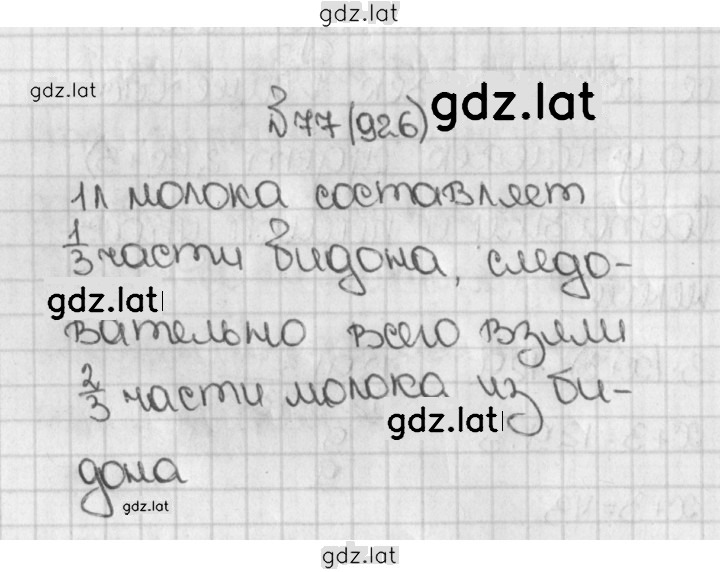 gdz.lat
gdz.lat
77(926) gdz.lat
1л молока составляет
1/3 части бидона, следо-
gdz.lat
вательно всего взяли
2/3 части молока из би-
gdz.lat
дона
gdz.lat
gdz.lat